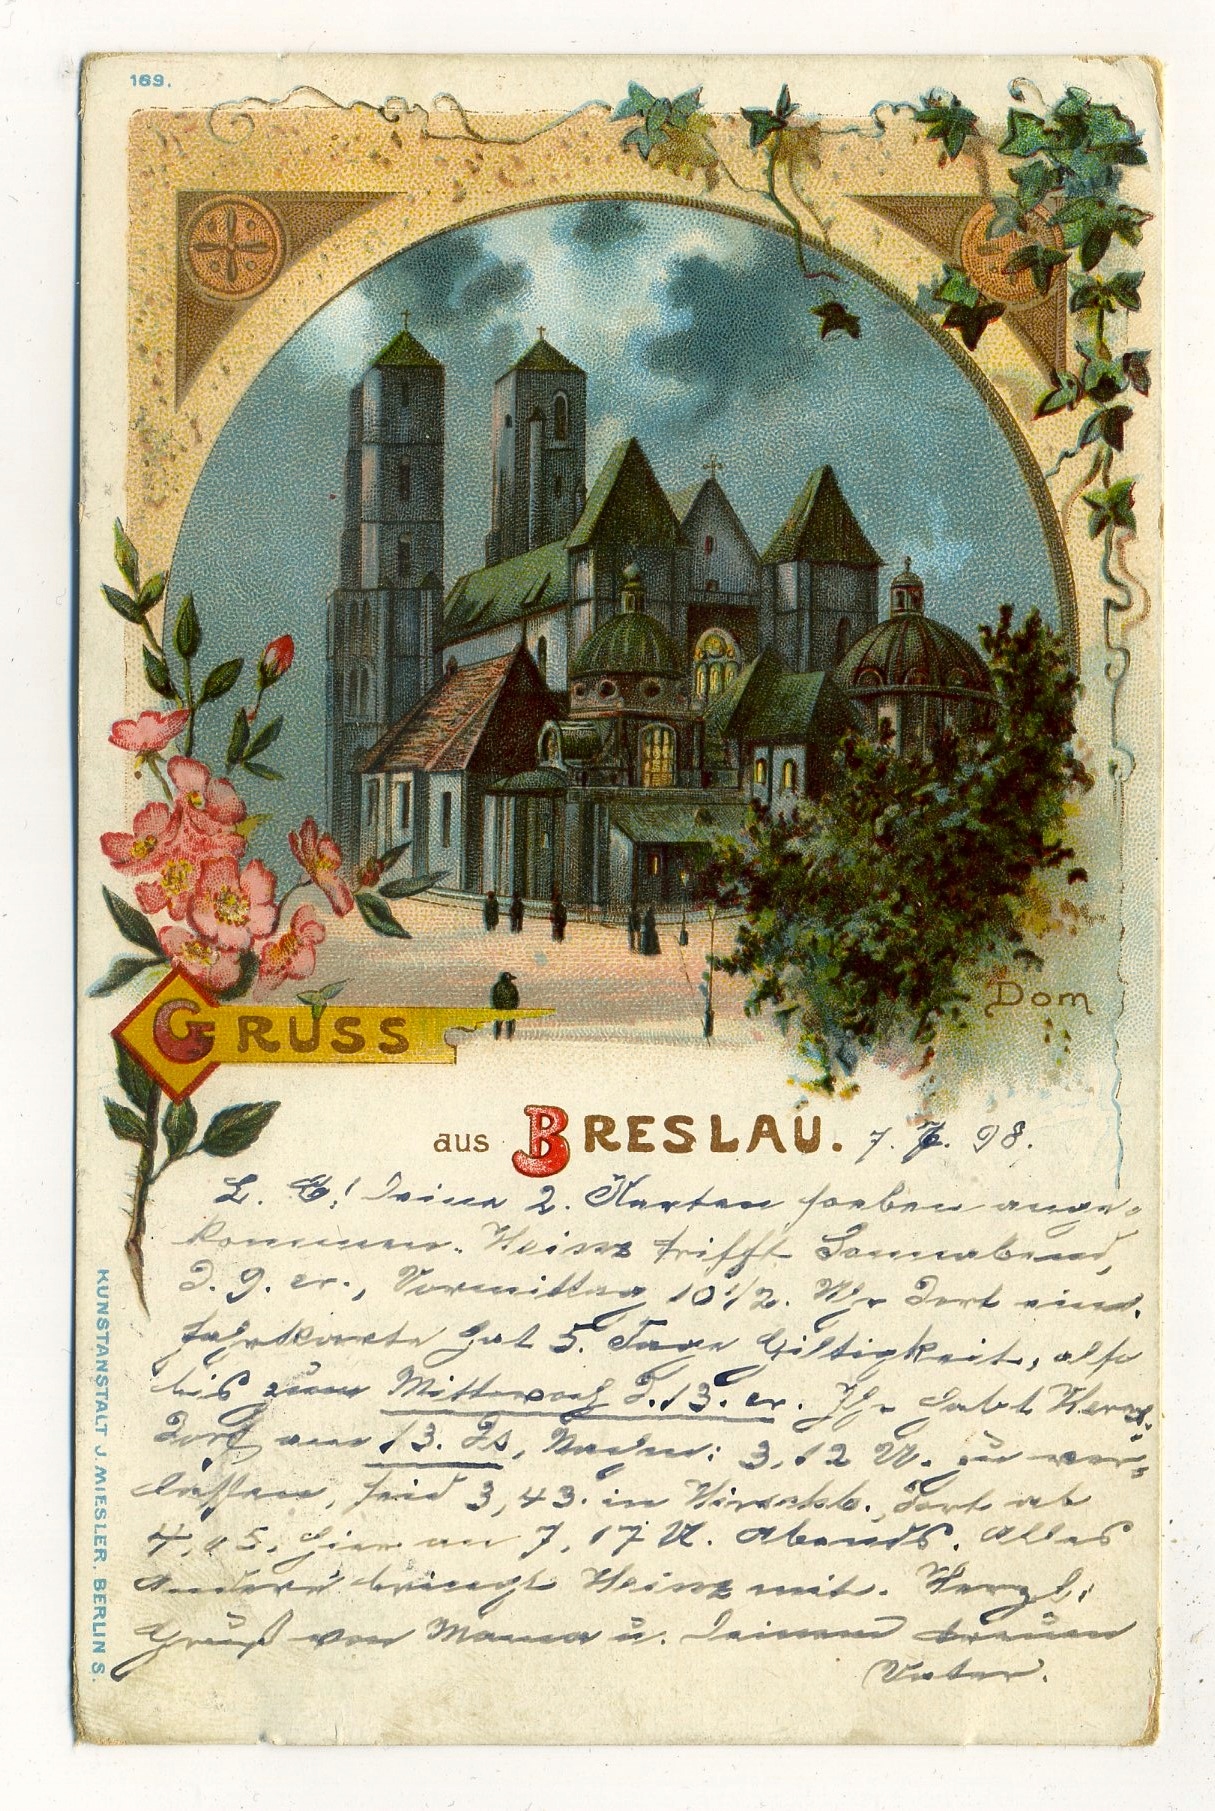 169.
GRUSS
Dom
aus BRESLAU. 7. 7. 98.
L. E.! Deine 2. Karten soeben ange-
kommen. Heinz trifft Sonnabend,
d. 9. cr., Vormittag 10 1/2. Uhr dort ein.
Fahrkarte hat 5. Tage Giltigkeit, also
bis zum Mittwoch d. 13. cr. Ihr habt
dort am 13. ds, Nachm: 3,12 U. zu ver-
lassen, seid 3,43. in Hirschb., dort ab
4,05. hier an 7,17 U. Abends. Alles
andere bringt Heinz mit. Herzl.
Gruß von Mama u. Deinem treuen
Vater.
KUNSTANSTALT J. MIESLER, BERLIN S.